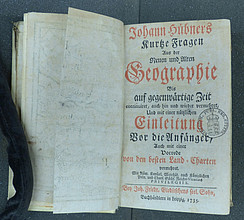 Johann Hübners
Kurtze Fragen
Aus der
Neuen und Alten
Geographie
Bis
auf gegenwärtige Zeit
continuiret, auch hin und wieder vermehret,
Und mit einer nützlichen
Einleitung
Vor die Anfänger,
Auch mit einer
Vorrede
von den besten Land-Charten
vermehret.
PRIVILEGIIS.
Bey Joh. Friedr. Gleditschens sel. Sohn,
Buchhändlern in Leipzig, 1735